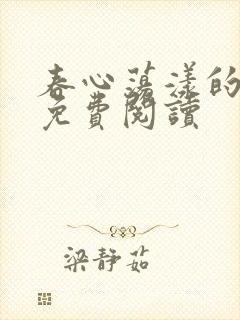 春心蕩漾的
免費閱讀
梁靜茹